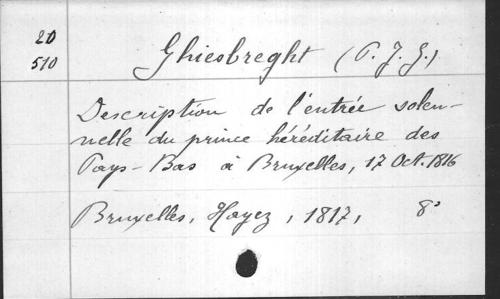 20 Ghiesbreght (P. J. G.)
510
Description de l'entrée solen-
nelle du prince héréditaire des
Pays-Bas à Bruxelles, 17 Oct. 1816
Bruxelles, Hayez, 1817, 8°